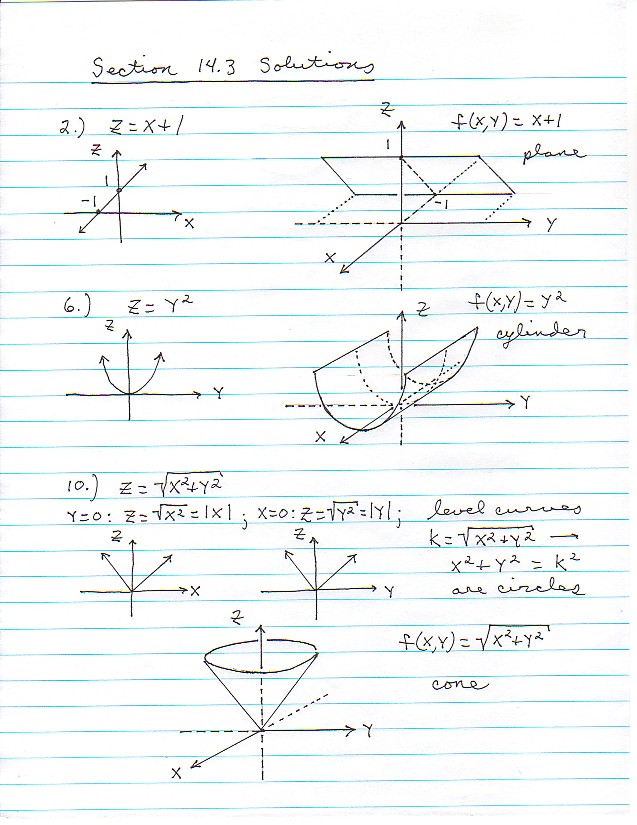 Section 14.3 Solutions
2.) Z = X+1
f(X,Y) = X+1
plane
Z
1
-1
X
Z
1
-1
Y
X
6.) Z = Y²
f(X,Y) = Y²
cylinder
Z
Y
Z
Y
X
10.) Z = √(X²+Y²)
Y=0: Z=√X² = |X| ; X=0: Z=√Y² = |Y| ;
level curves
K = √(X²+Y²) →
X² + Y² = K²
are circles
Z
X
Z
Y
f(X,Y) = √(X²+Y²)
cone
Z
Y
X